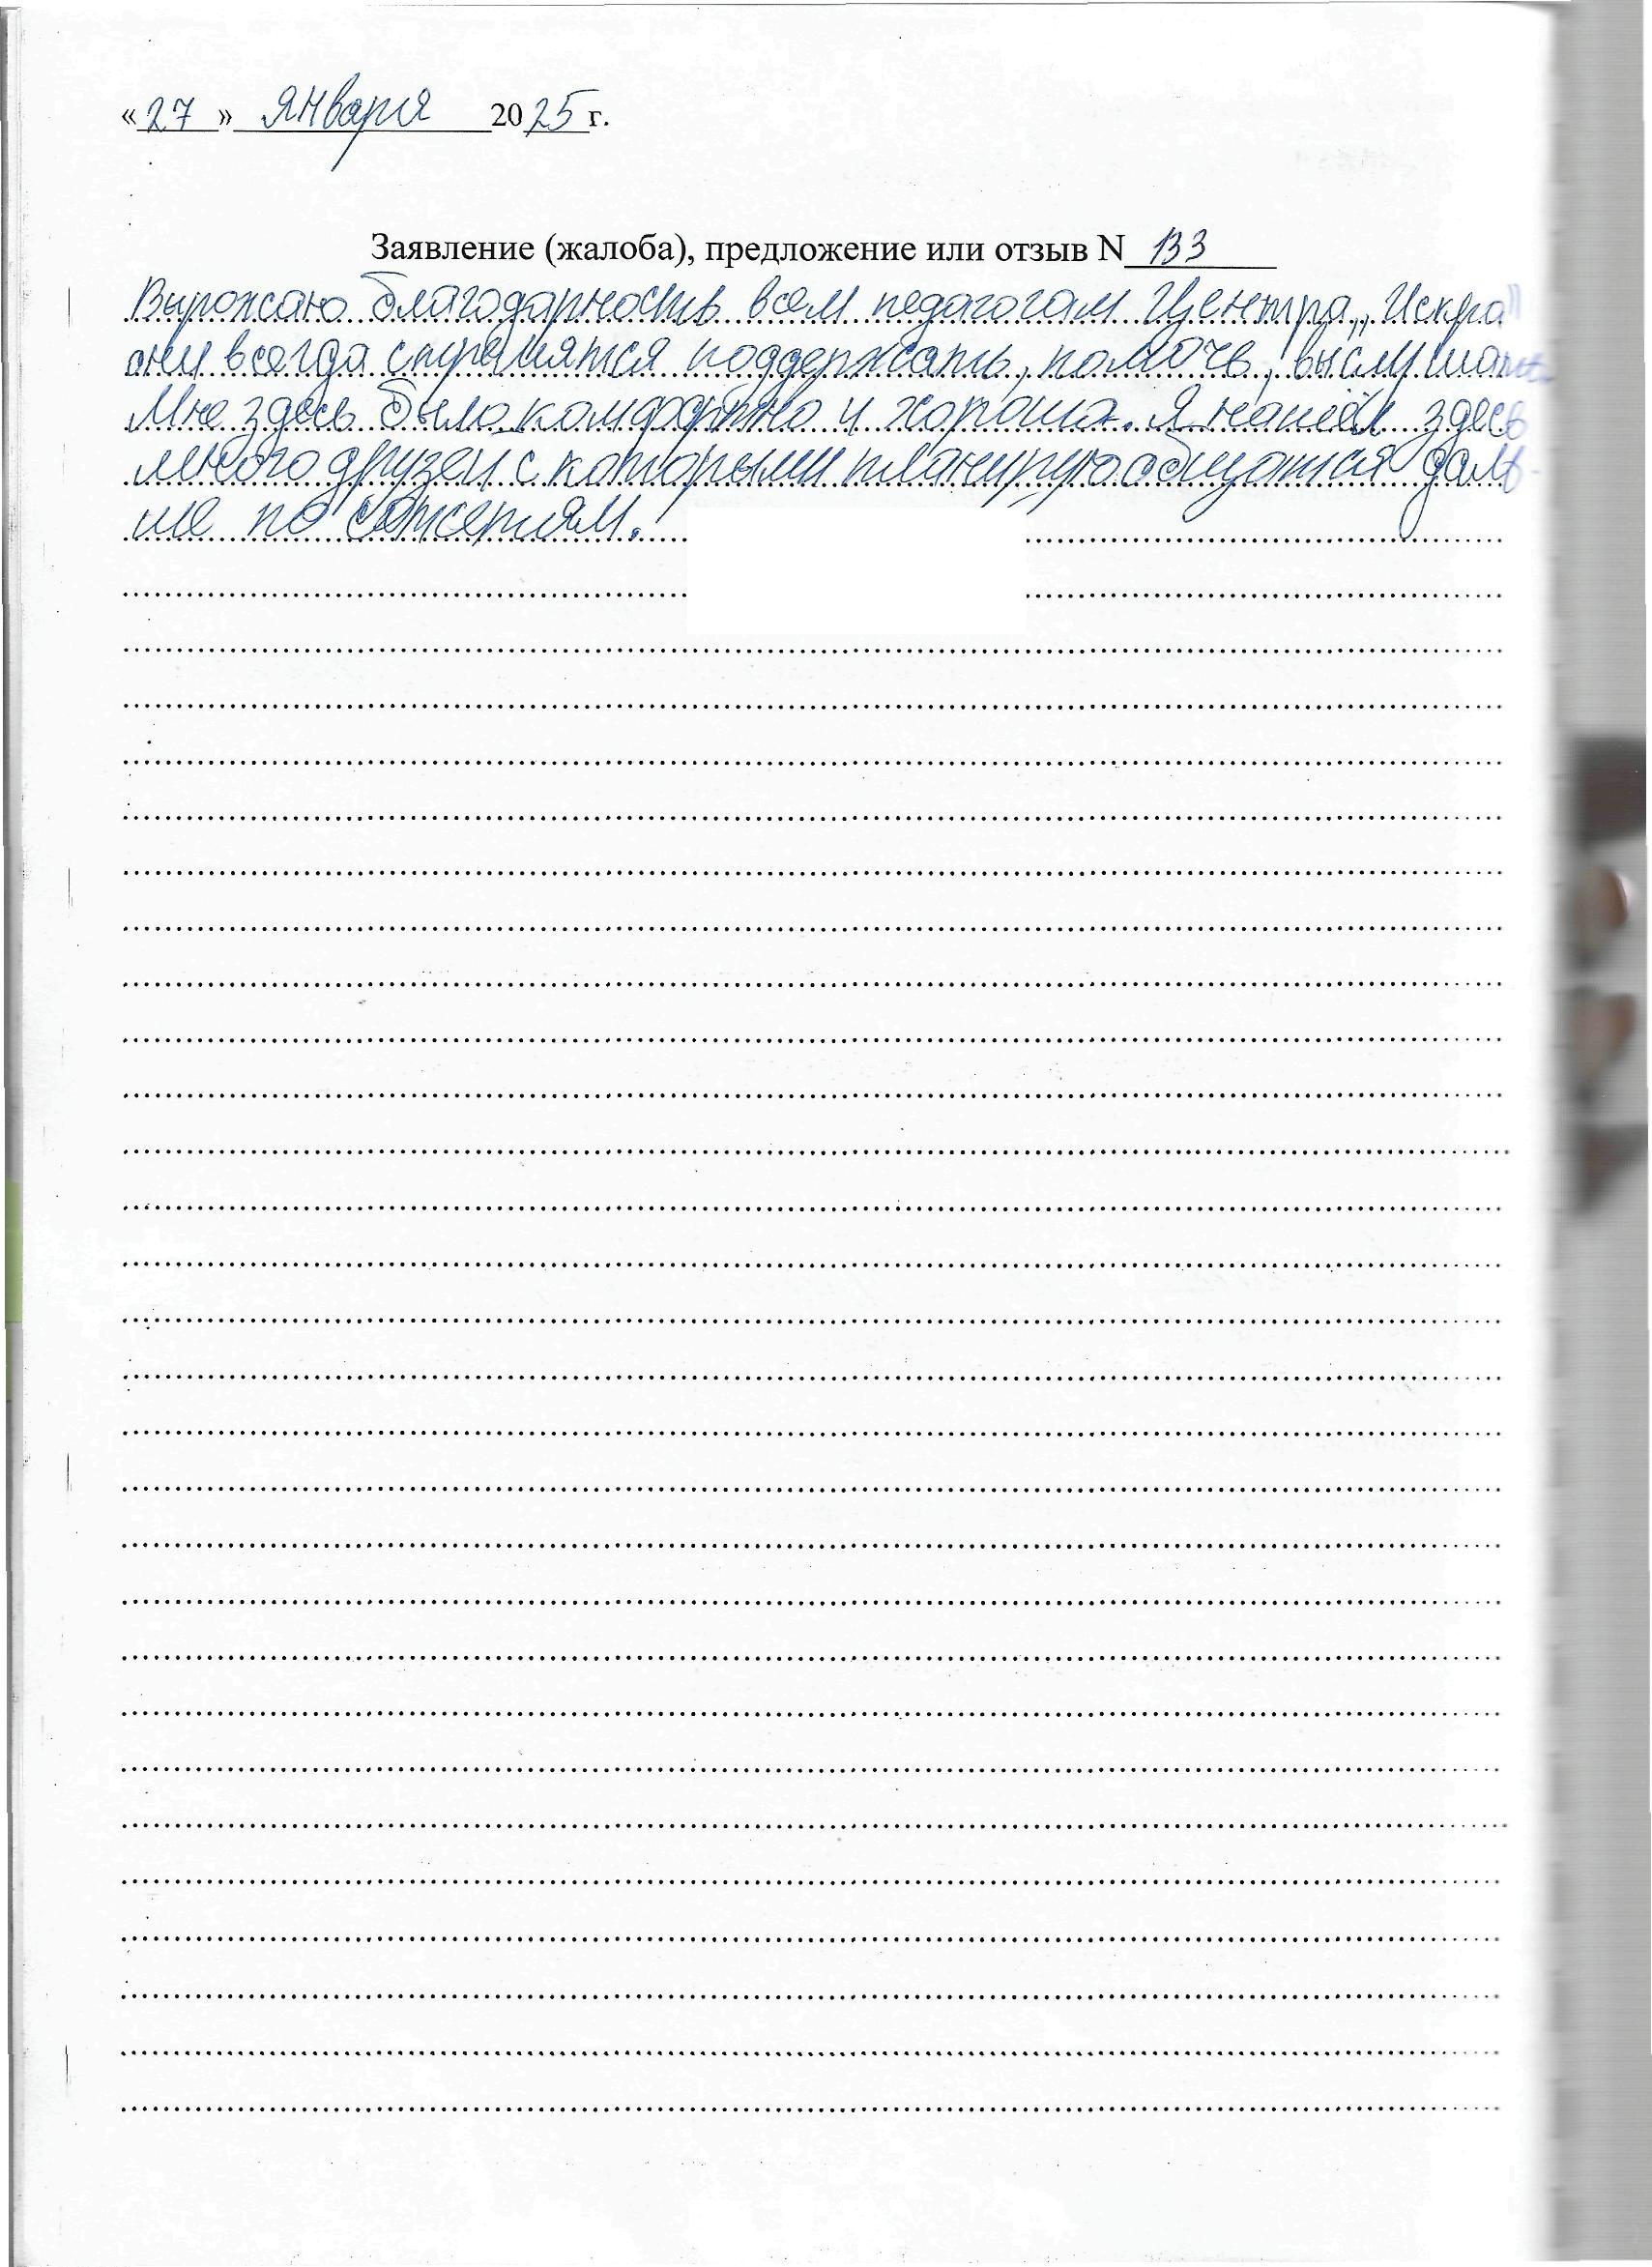 «27» января 2025 г.
Заявление (жалоба), предложение или отзыв N 133
Выражаю благодарность всем педагогам Центра „Искра"
они всегда стремятся поддержать, помочь, выслушать.
Мне здесь было комфортно и хорошо. Я нашёл здесь
много друзей с которыми планирую общатся даль-
ше по сотсетям.